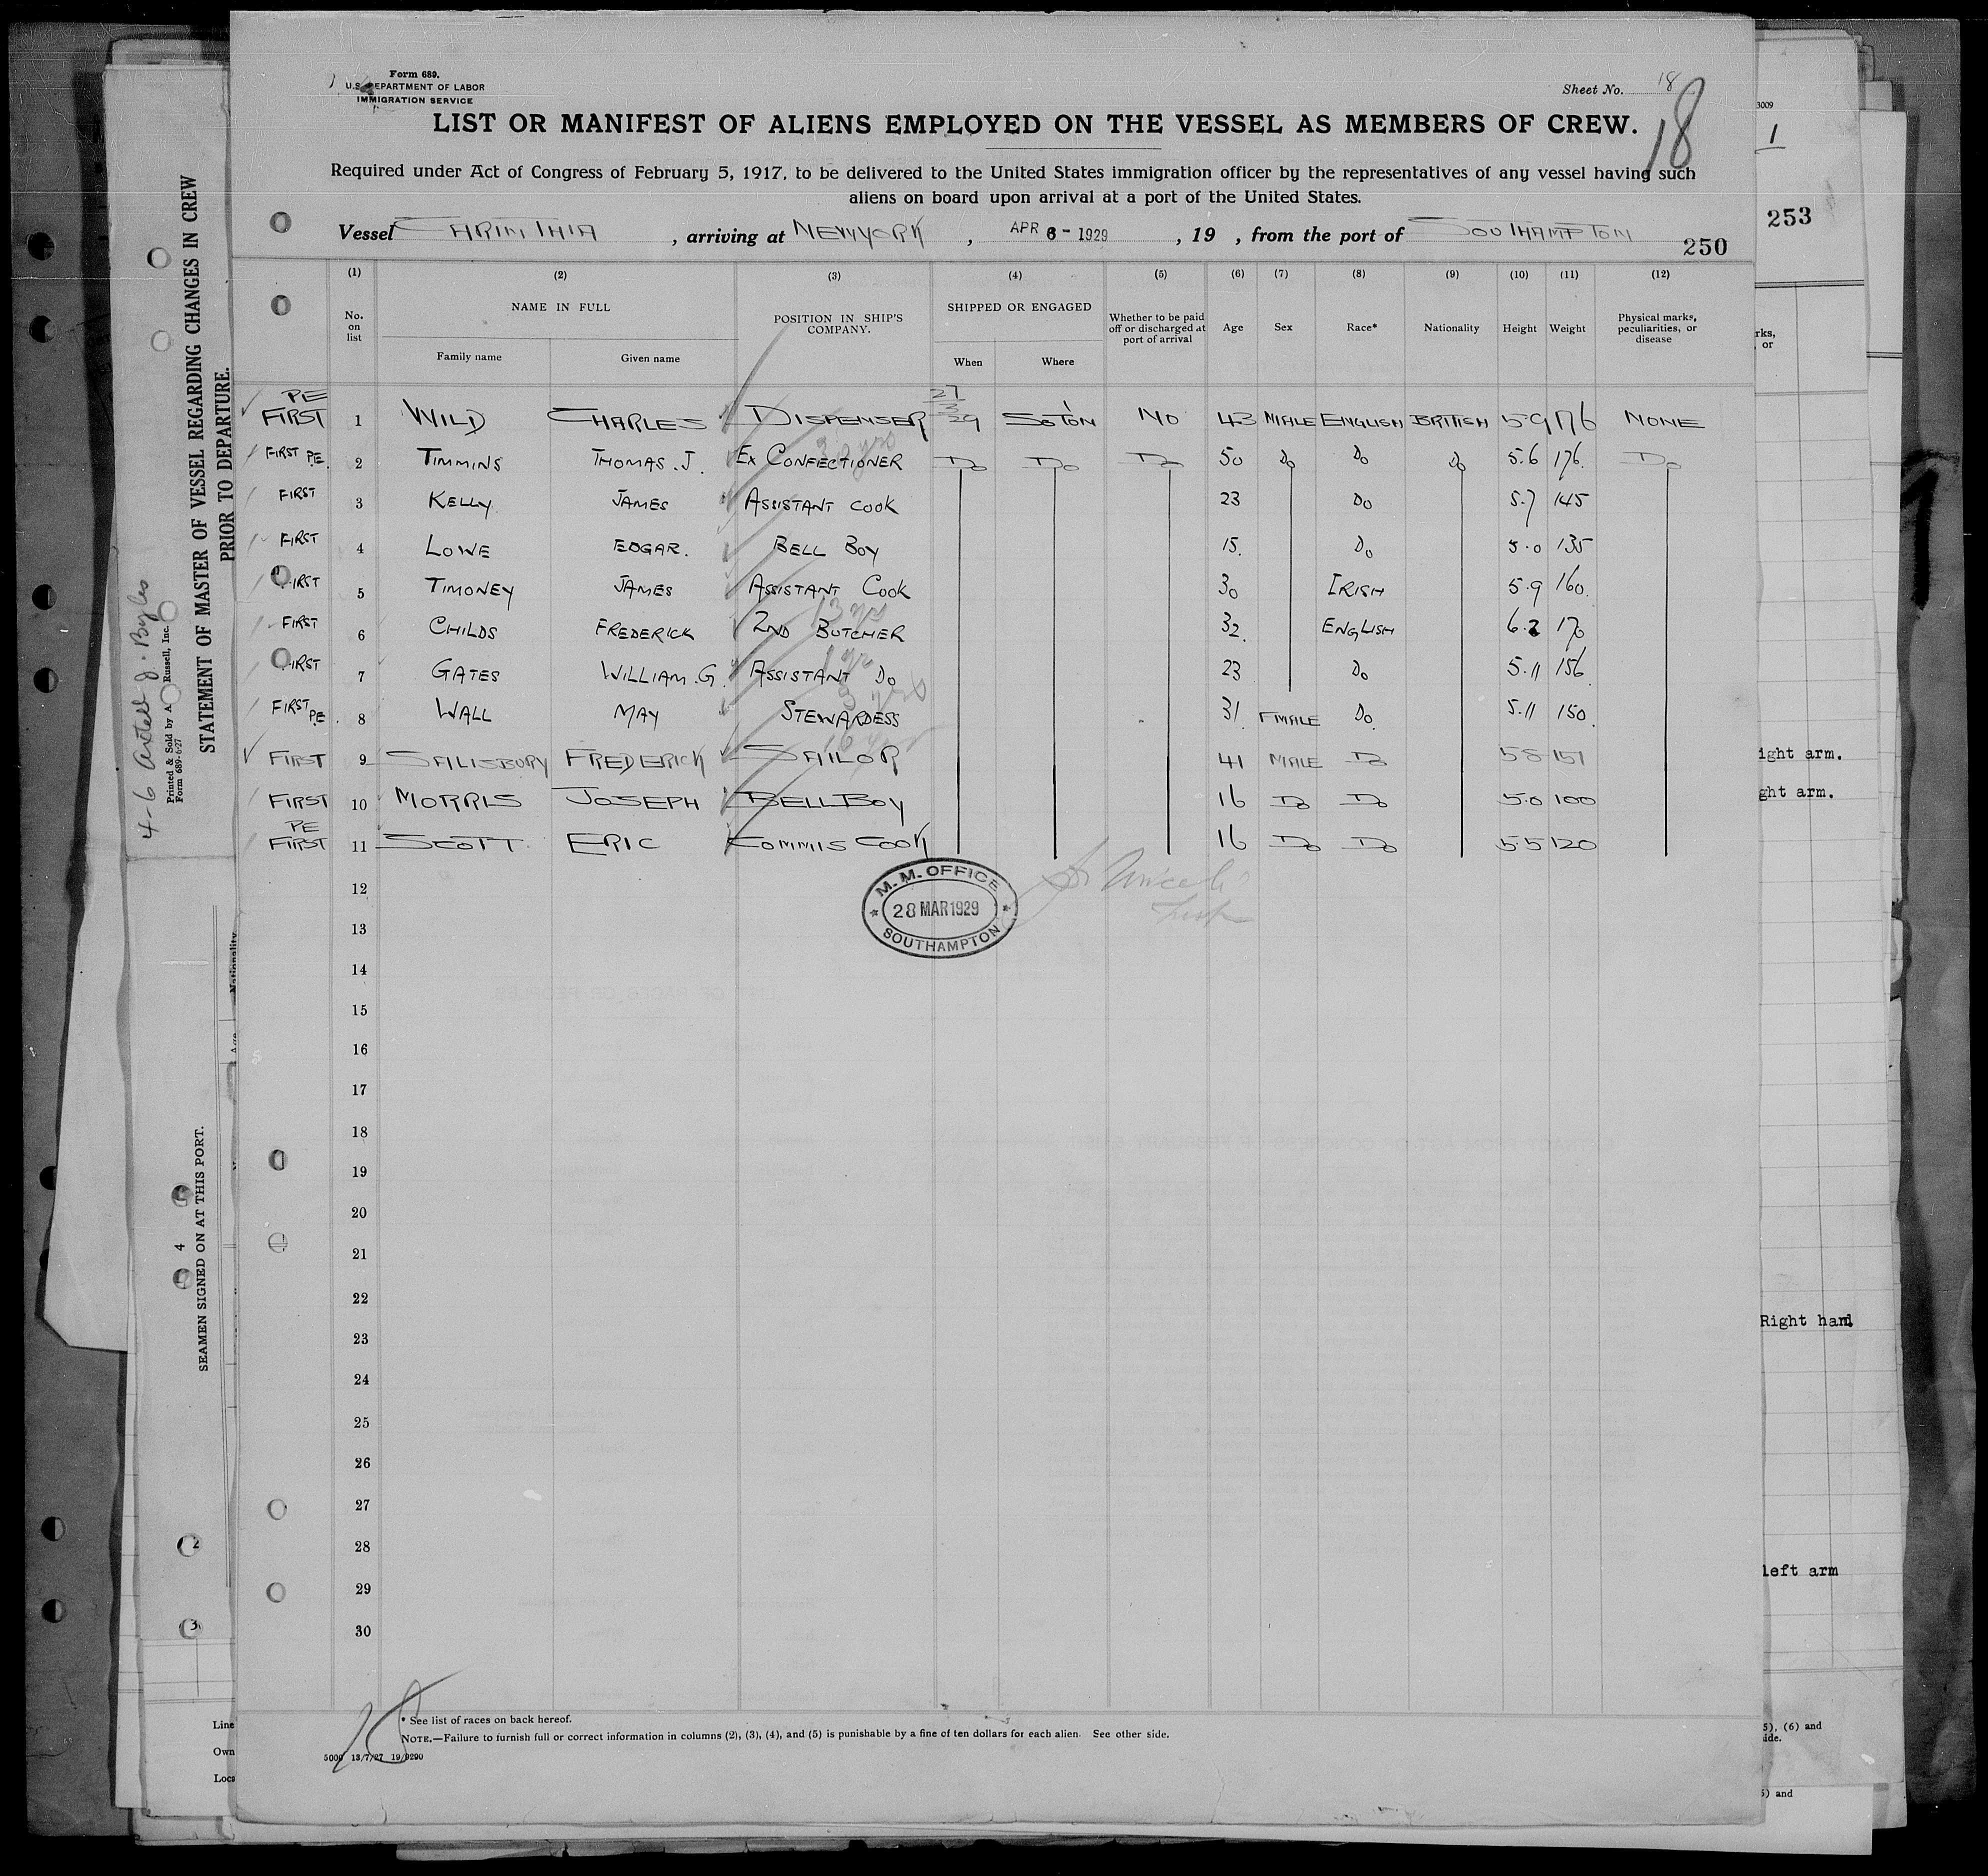 Form 689.
U.S. DEPARTMENT OF LABOR
IMMIGRATION SERVICE
Sheet No. 18
18
LIST OR MANIFEST OF ALIENS EMPLOYED ON THE VESSEL AS MEMBERS OF CREW.
Required under Act of Congress of February 5, 1917, to be delivered to the United States immigration officer by the representatives of any vessel having such
aliens on board upon arrival at a port of the United States.
Vessel CARINTHIA, arriving at NEW YORK, APR 6 - 1929, 19 , from the port of SOUTHAMPTON
250
(1) (2) (3) (4) (5) (6) (7) (8) (9) (10) (11) (12)
No. on list NAME IN FULL POSITION IN SHIP'S COMPANY. SHIPPED OR ENGAGED Whether to be paid off or discharged at port of arrival Age Sex Race* Nationality Height Weight Physical marks, peculiarities, or disease
Family name Given name When Where
PE FIRST 1 WILD CHARLES DISPENSER 27/3/29 SOTON NO 43 MALE ENGLISH BRITISH 5-9 176 NONE
FIRST PE. 2 TIMMINS THOMAS.J. EX CONFECTIONER DO DO DO 50 DO DO DO 5.6 176. DO
FIRST 3 KELLY JAMES ASSISTANT COOK 23 DO 5.7 145
FIRST 4 LOWE EDGAR. BELL BOY 15. DO 5.0 135
FIRST 5 TIMONEY JAMES ASSISTANT COOK 30 IRISH 5.9 160.
FIRST 6 CHILDS FREDERICK 2ND BUTCHER 32. ENGLISH 6.2 170
FIRST 7 GATES WILLIAM.G. ASSISTANT DO 23 DO 5.11 156
FIRST PE. 8 WALL MAY STEWARDESS 31 FMALE DO 5.11 150.
FIRST 9 SALISBURY FREDERICK SAILOR 41 MALE DO 5-8 151
FIRST 10 MORRIS JOSEPH BELL BOY 16 DO DO 5.0 100
PE FIRST 11 SCOTT ERIC COMMIS COOK 16 DO DO 5.5 120
12
M. M. OFFICE
28 MAR 1929
SOUTHAMPTON
13
14
15
16
17
18
19
20
21
22
23
24
25
26
27
28
29
30
* See list of races on back hereof.
NOTE.—Failure to furnish full or correct information in columns (2), (3), (4), and (5) is punishable by a fine of ten dollars for each alien. See other side.
5000 13/7/27 19/9290
STATEMENT OF MASTER OF VESSEL REGARDING CHANGES IN CREW
PRIOR TO DEPARTURE.
Printed & Sold by A Russell, Inc.
Form 689-6/27
SEAMEN SIGNED ON AT THIS PORT.
4
Nationality
Age
2
3
Line
Own
Loca
3009
1
253
rks,
or
ight arm.
ght arm.
Right hand
left arm
5), (6) and
side.
5) and